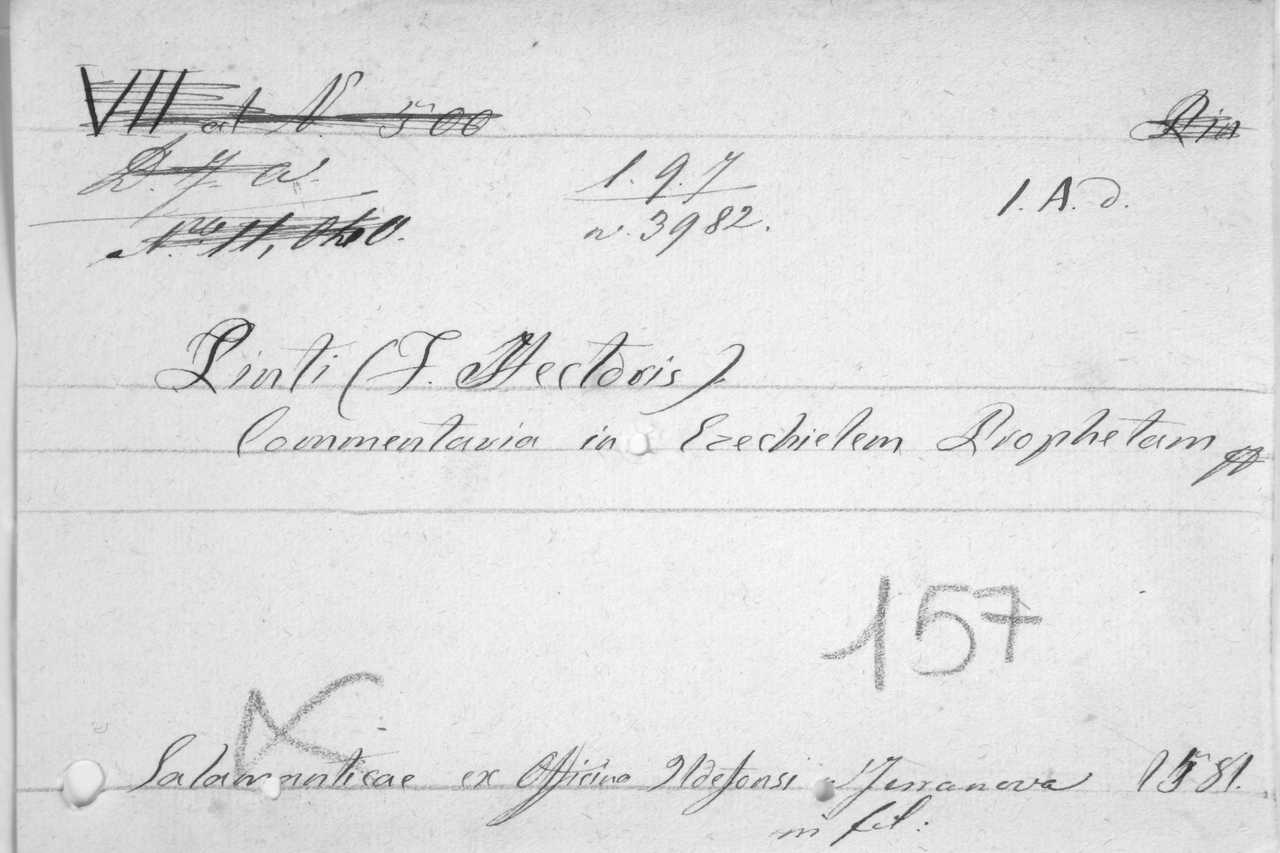 VII at N. 500
Pin
D. 7. a.
1. 9. 7
n. 3982.
1. A. d.
Nro 11,
Pinti (F. Hectoris)
Commentaria in Ezechielem Prophetam
157
Salamanticae ex Officina Ildefonsi Terranova 1581.
in fol: